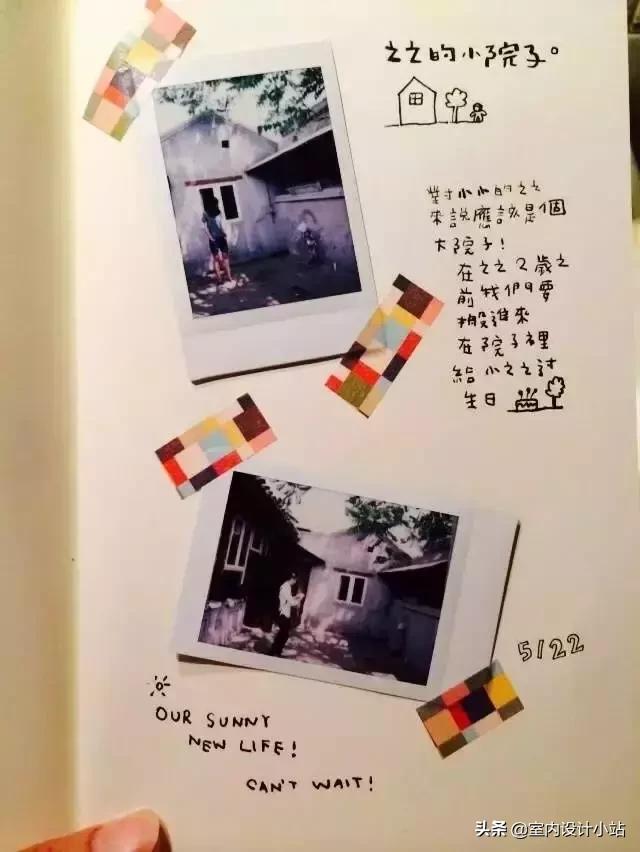 之之的小院子。
對小小的之之
來說應該是個
大院子!
在之之2歲之
前我們要
搬進來
在院子裡
給小之之討
生日
5/22
OUR SUNNY
NEW LIFE!
CAN'T WAIT!
头条 @室内设计小站